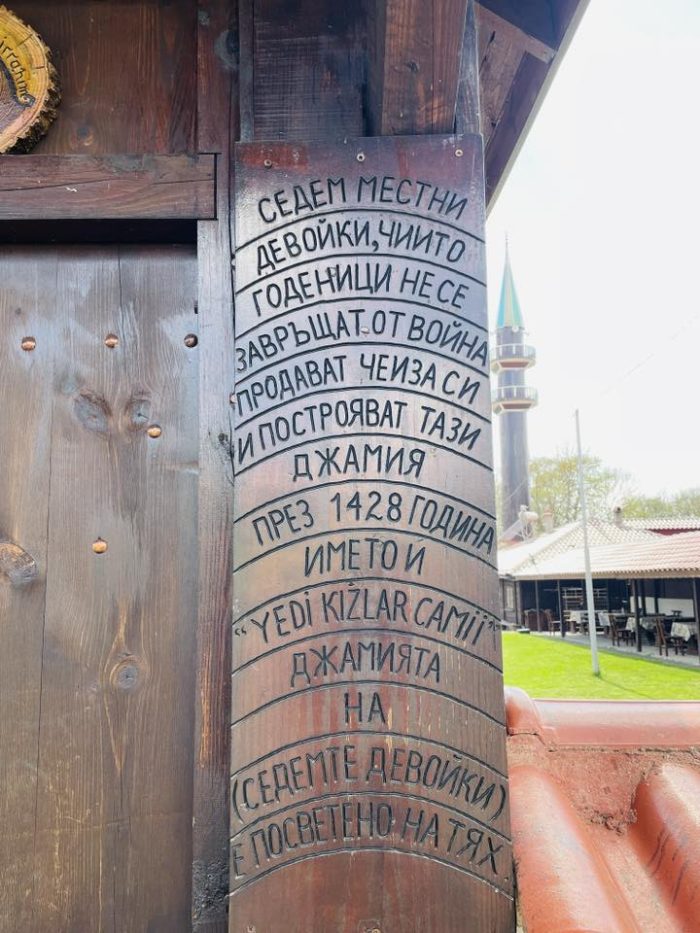 irrahim
СЕДЕМ МЕСТНИ
ДЕВОЙКИ, ЧИИТО
ГОДЕНИЦИ НЕ СЕ
ЗАВРЪЩАТ ОТ ВОЙНА
ПРОДАВАТ ЧЕИЗА СИ
И ПОСТРОЯВАТ ТАЗИ
ДЖАМИЯ
ПРЕЗ 1428 ГОДИНА
ИМЕТО И
"YEDİ KIŽLAR CAMİİ"
ДЖАМИЯТА
НА
(СЕДЕМТЕ ДЕВОЙКИ)
Е ПОСВЕТЕНО НА ТЯХ